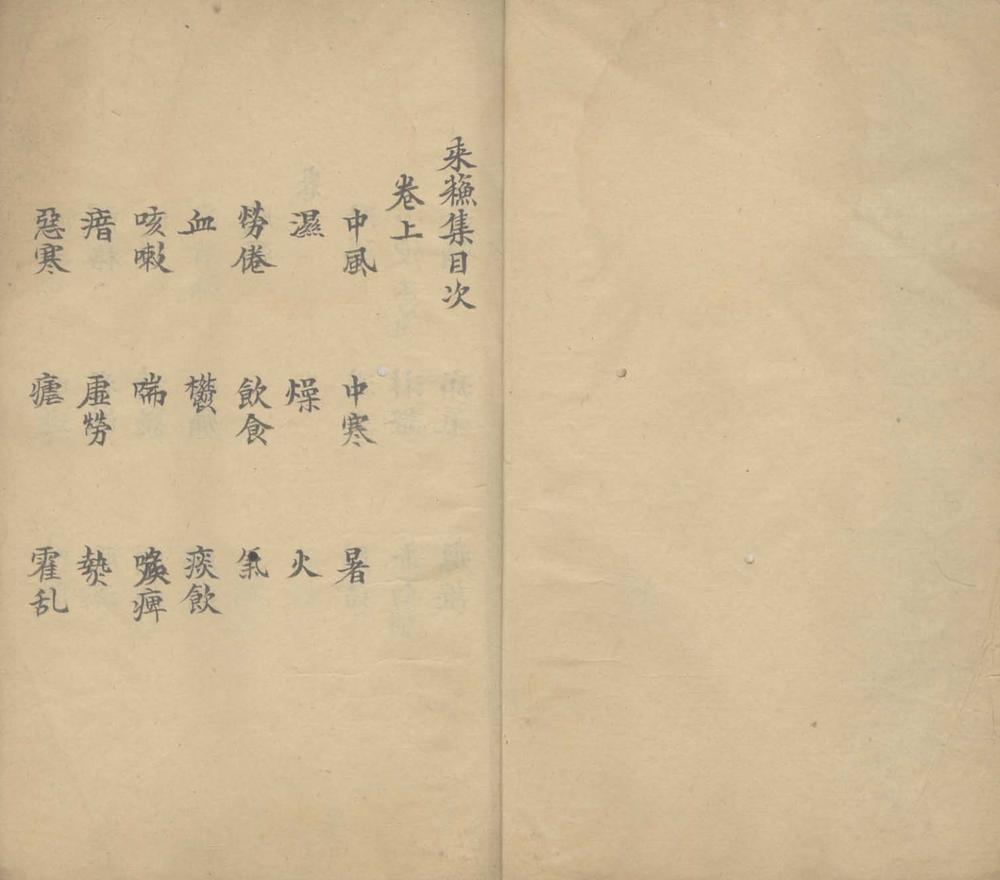 来蘓集目次
卷上
中風　中寒　暑
濕　燥　火
勞倦　飲食　氣
血　欝　痰飲
咳嗽　喘　喉痺
瘖　虛勞　熱
惡寒　瘧　霍乱